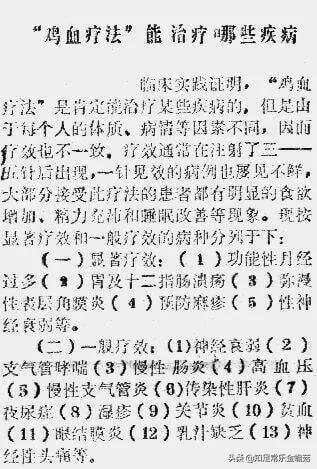 “鸡血疗法”能治疗哪些疾病
临床实践证明，“鸡血
疗法”是肯定能治疗某些疾病的，但是由
于每个人的体质、病情等因素不同，因而
疗效也不一致。疗效通常在注射了三——
五针后出现，一针见效的病例也屡见不鲜，
大部分接受此疗法的患者都有明显的食欲
增加、精力充沛和睡眠改善等现象。现按
显著疗效和一般疗效的病种分列于下：
（一）显著疗效：（1）功能性月经
过多（2）胃及十二指肠溃疡（3）弥漫
性表层角膜炎（4）预防麻疹（5）性神
经衰弱等。
（二）一般疗效：（1）神经衰弱（2）
支气管哮喘（3）慢性肠炎（4）高血压
（5）慢性支气管炎（6）传染性肝炎（7）
夜尿症（8）湿疹（9）关节炎（10）贫血
（11）眼结膜炎（12）乳汁缺乏（13）神
经性头痛等。
头条 @知足常乐金榆菇